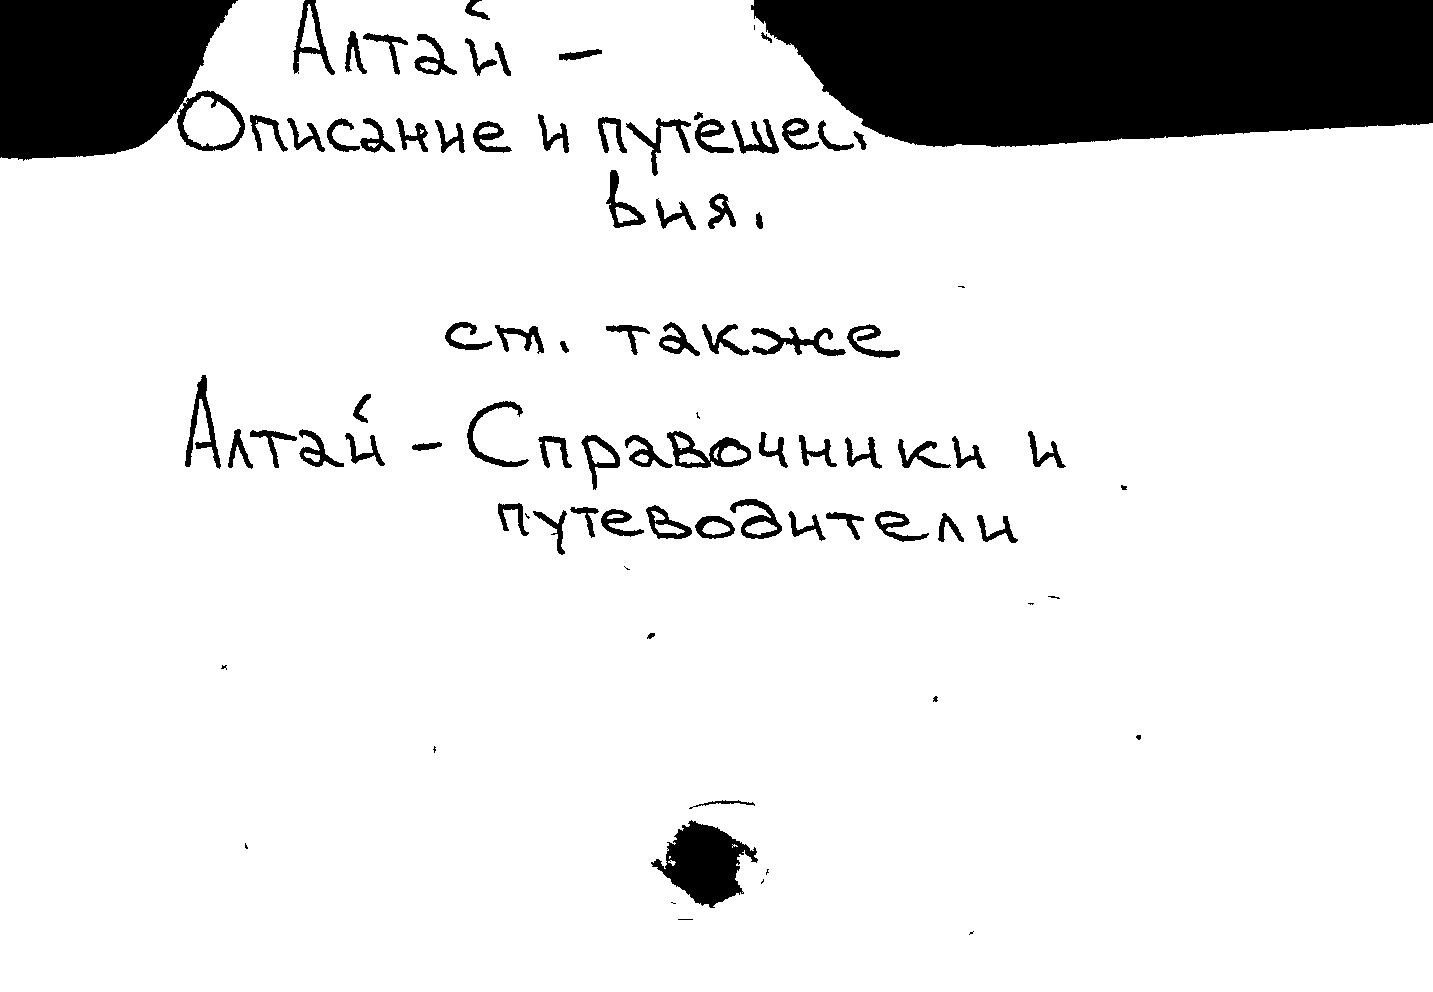 Алтай –
Описание и путешес
вия.
см. также
Алтай – Справочники и
путеводители